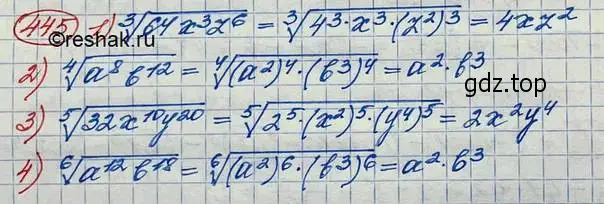 445 1) ∛(64x³z⁶) = ∛(4³·x³·(z²)³) = 4xz²
©reshak.ru
2) ⁴√(a⁸b¹²) = ⁴√((a²)⁴·(b³)⁴) = a²·b³
gdz.top
3) ⁵√(32x¹⁰y²⁰) = ⁵√(2⁵·(x²)⁵·(y⁴)⁵) = 2x²y⁴
4) ⁶√(a¹²b¹⁸) = ⁶√((a²)⁶·(b³)⁶) = a²·b³